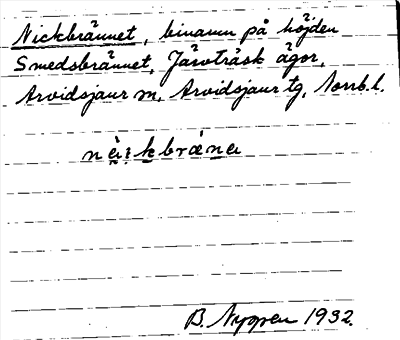 Nickbrännet, binamn på höjden
Smedsbrännet, Järvträsk ägor,
Arvidsjaur sn, Arvidsjaur tg, Norrb. l.
B. Nygren 1932.